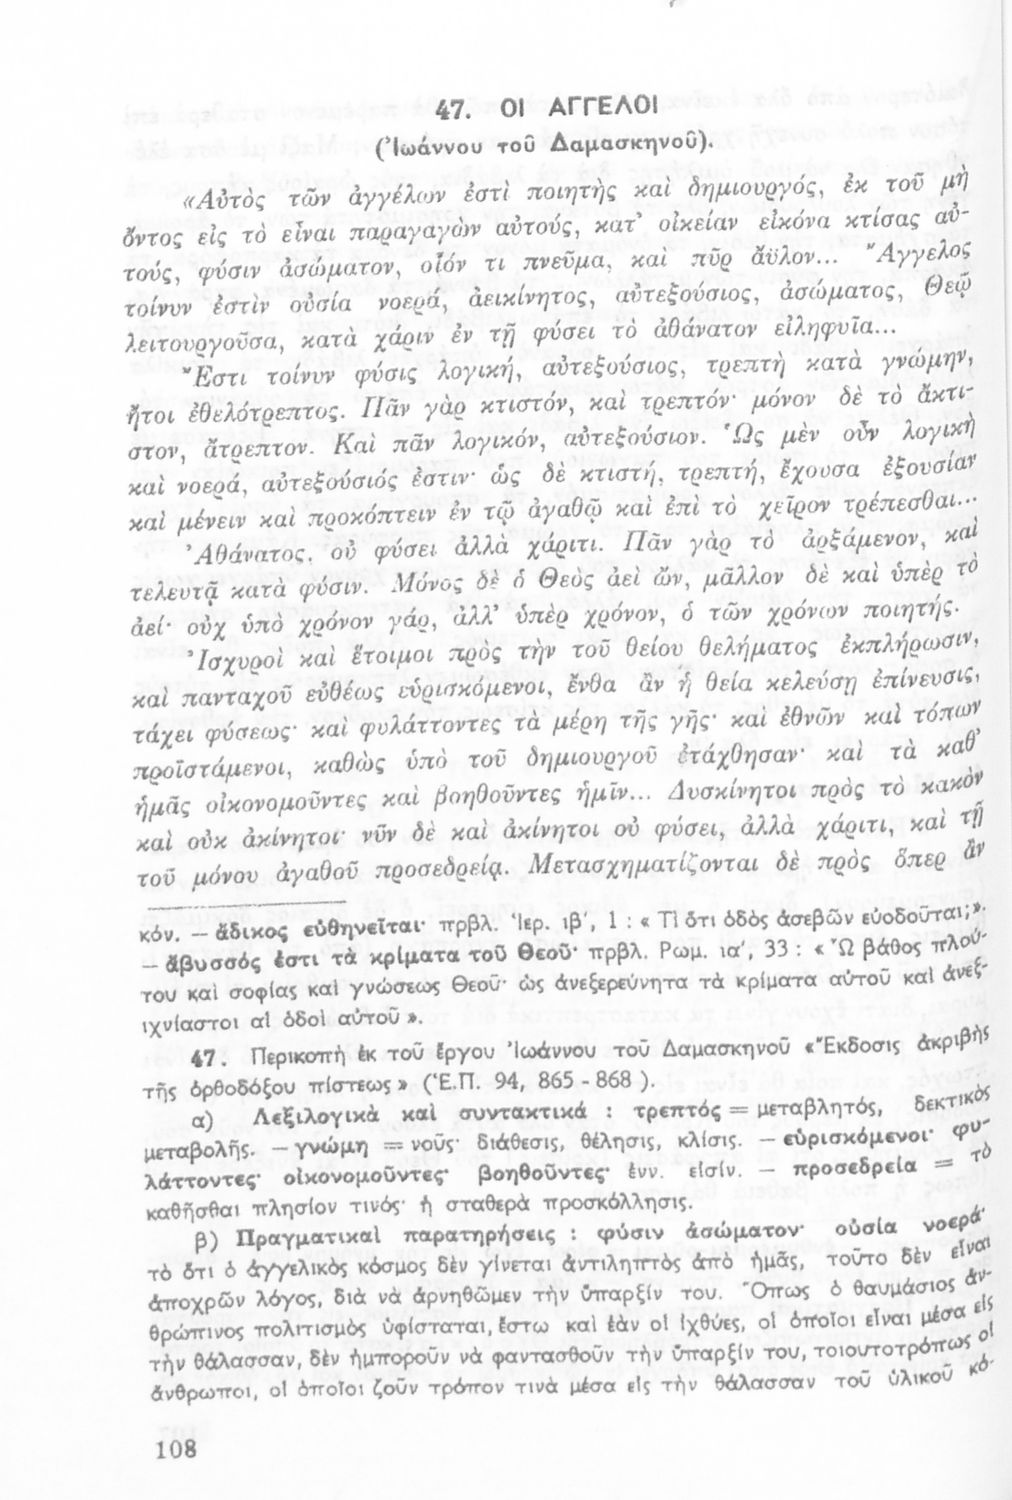 47. ΟΙ ΑΓΓΕΛΟΙ
(Ἰωάννου τοῦ Δαμασκηνοῦ).
«Αὐτὸς τῶν ἀγγέλων ἐστὶ ποιητὴς καὶ δημιουργός, ἐκ τοῦ μὴ
ὄντος εἰς τὸ εἶναι παραγαγὼν αὐτούς, κατ' οἰκείαν εἰκόνα κτίσας αὐ-
τούς, φύσιν ἀσώματον, οἷόν τι πνεῦμα, καὶ πῦρ ἄϋλον... Ἄγγελος
τοίνυν ἐστὶν οὐσία νοερά, ἀεικίνητος, αὐτεξούσιος, ἀσώματος, Θεῷ
λειτουργοῦσα, κατὰ χάριν ἐν τῇ φύσει τὸ ἀθάνατον εἰληφυῖα...
Ἔστι τοίνυν φύσις λογική, αὐτεξούσιος, τρεπτὴ κατὰ γνώμην,
ἤτοι ἐθελότρεπτος. Πᾶν γὰρ κτιστόν, καὶ τρεπτόν· μόνον δὲ τὸ ἄκτι-
στον, ἄτρεπτον. Καὶ πᾶν λογικόν, αὐτεξούσιον. Ὡς μὲν οὖν λογικὴ
καὶ νοερά, αὐτεξούσιός ἐστιν· ὡς δὲ κτιστή, τρεπτή, ἔχουσα ἐξουσίαν
καὶ μένειν καὶ προκόπτειν ἐν τῷ ἀγαθῷ καὶ ἐπὶ τὸ χεῖρον τρέπεσθαι...
Ἀθάνατος, οὐ φύσει ἀλλὰ χάριτι. Πᾶν γὰρ τὸ ἀρξάμενον, καὶ
τελευτᾷ κατὰ φύσιν. Μόνος δὲ ὁ Θεὸς ἀεὶ ὤν, μᾶλλον δὲ καὶ ὑπὲρ τὸ
ἀεί· οὐχ ὑπὸ χρόνον γάρ, ἀλλ' ὑπὲρ χρόνον, ὁ τῶν χρόνων ποιητής.
Ἰσχυροὶ καὶ ἕτοιμοι πρὸς τὴν τοῦ θείου θελήματος ἐκπλήρωσιν,
καὶ πανταχοῦ εὐθέως εὑρισκόμενοι, ἔνθα ἂν ἡ θεία κελεύσῃ ἐπίνευσις,
τάχει φύσεως· καὶ φυλάττοντες τὰ μέρη τῆς γῆς· καὶ ἐθνῶν καὶ τόπων
προϊστάμενοι, καθὼς ὑπὸ τοῦ δημιουργοῦ ἐτάχθησαν· καὶ τὰ καθ'
ἡμᾶς οἰκονομοῦντες καὶ βοηθοῦντες ἡμῖν... Δυσκίνητοι πρὸς τὸ κακὸν
καὶ οὐκ ἀκίνητοι· νῦν δὲ καὶ ἀκίνητοι οὐ φύσει, ἀλλὰ χάριτι, καὶ τῇ
τοῦ μόνου ἀγαθοῦ προσεδρείᾳ. Μετασχηματίζονται δὲ πρὸς ὅπερ ἂν
κόν. — ἄδικος εὐθηνεῖται· πρβλ. Ἱερ. ιβ', 1 : « Τί ὅτι ὁδὸς ἀσεβῶν εὐοδοῦται;».
— ἄβυσσός ἐστι τὰ κρίματα τοῦ Θεοῦ· πρβλ. Ρωμ. ια', 33 : « Ὢ βάθος πλού-
του καὶ σοφίας καὶ γνώσεως Θεοῦ· ὡς ἀνεξερεύνητα τὰ κρίματα αὐτοῦ καὶ ἀνεξ-
ιχνίαστοι αἱ ὁδοὶ αὐτοῦ ».
47. Περικοπὴ ἐκ τοῦ ἔργου Ἰωάννου τοῦ Δαμασκηνοῦ «Ἔκδοσις ἀκριβὴς
τῆς ὀρθοδόξου πίστεως » (Ἑ.Π. 94, 865 - 868 ).
α) Λεξιλογικὰ καὶ συντακτικά : τρεπτός = μεταβλητός, δεκτικὸς
μεταβολῆς. — γνώμη = νοῦς· διάθεσις, θέλησις, κλίσις. — εὑρισκόμενοι· φυ-
λάττοντες· οἰκονομοῦντες· βοηθοῦντες· ἐνν. εἰσίν. — προσεδρεία = τὸ
καθῆσθαι πλησίον τινός· ἡ σταθερὰ προσκόλλησις.
β) Πραγματικαὶ παρατηρήσεις : φύσιν ἀσώματον· οὐσία νοερά·
τὸ ὅτι ὁ ἀγγελικὸς κόσμος δὲν γίνεται ἀντιληπτὸς ἀπὸ ἡμᾶς, τοῦτο δὲν εἶναι
ἀποχρῶν λόγος, διὰ νὰ ἀρνηθῶμεν τὴν ὕπαρξίν του. Ὅπως ὁ θαυμάσιος ἀν-
θρώπινος πολιτισμὸς ὑφίσταται, ἔστω καὶ ἐὰν οἱ ἰχθύες, οἱ ὁποῖοι εἶναι μέσα εἰς
τὴν θάλασσαν, δὲν ἠμποροῦν νὰ φαντασθοῦν τὴν ὕπαρξίν του, τοιουτοτρόπως οἱ
ἄνθρωποι, οἱ ὁποῖοι ζοῦν τρόπον τινὰ μέσα εἰς τὴν θάλασσαν τοῦ ὑλικοῦ κό-
108